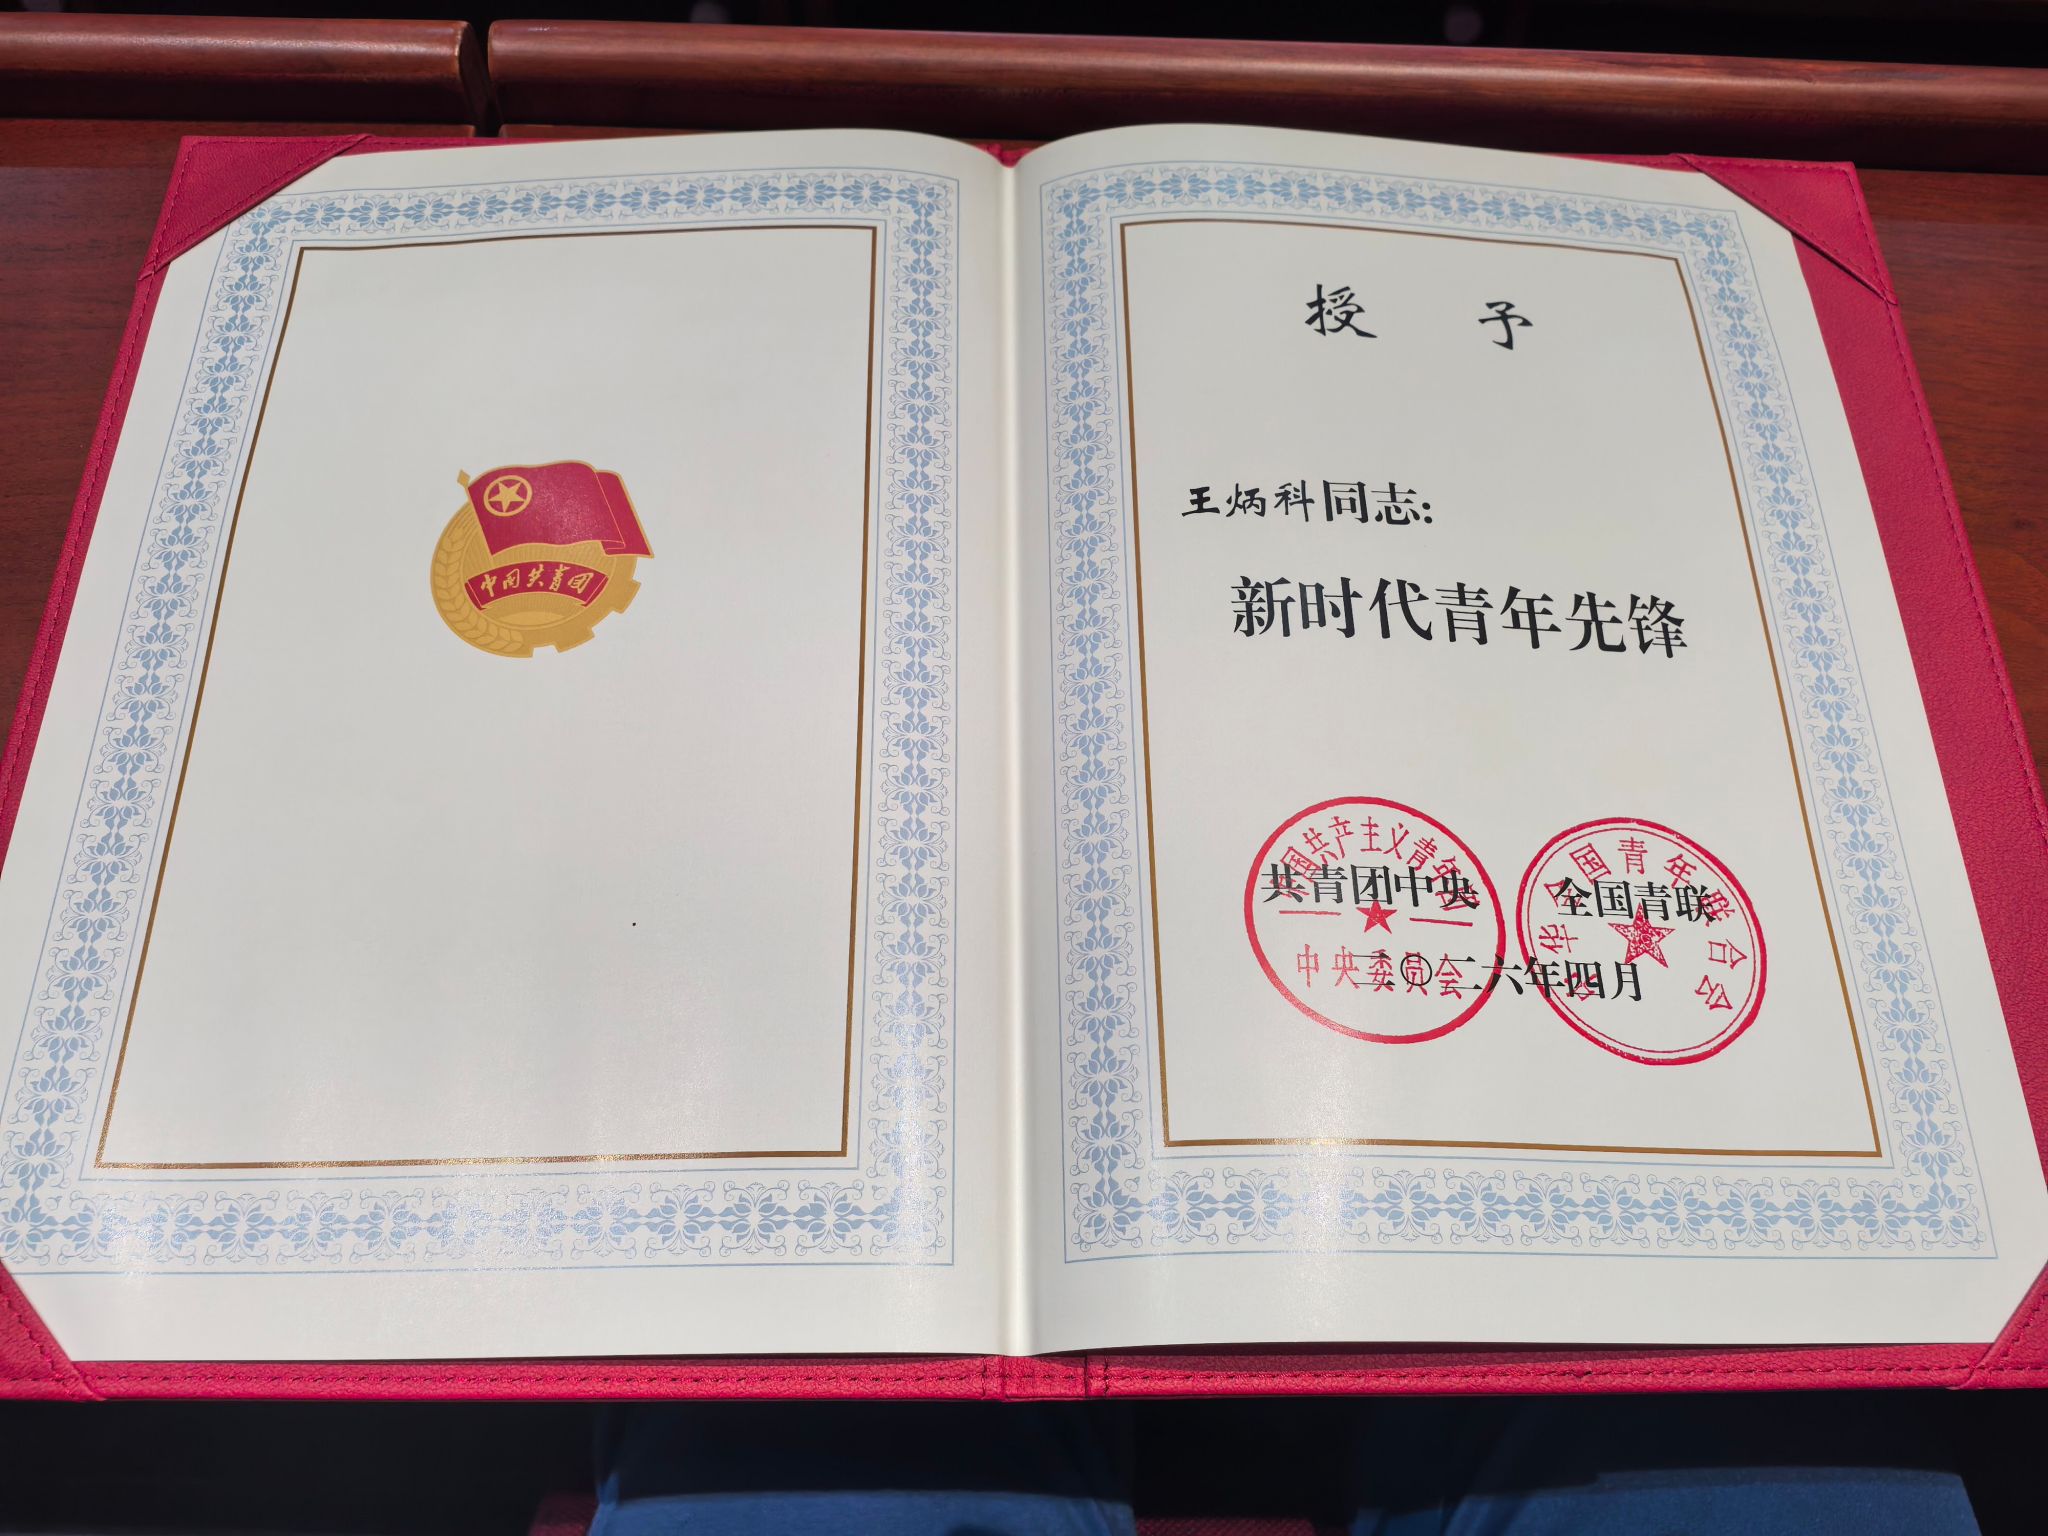 中国共青团
授 予
王炳科同志:
新时代青年先锋
共青团中央
全国青联
二〇二六年四月
中国共产主义青年团
中央委员会
中华全国青年联合会